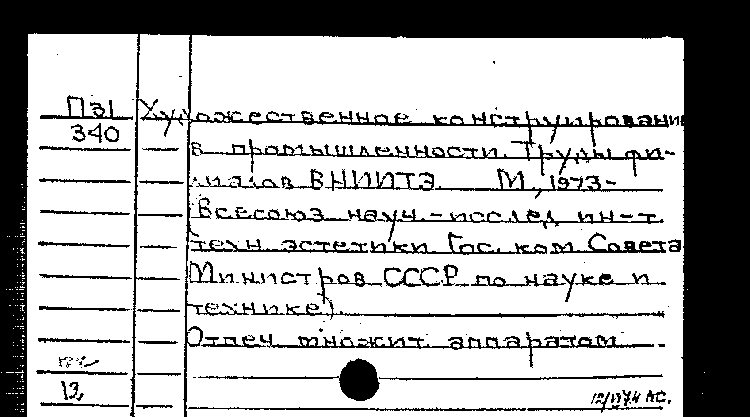 П31 Художественное конструировани
340
в промышленности. Труды фи-
лиалов ВНИИТЭ. М., 1973-
(Всесоюз. науч.-исслед. ин-т
техн. эстетики Гос. ком. Совета
Министров СССР по науке и
технике).
Отпеч. множит. аппаратом
13,